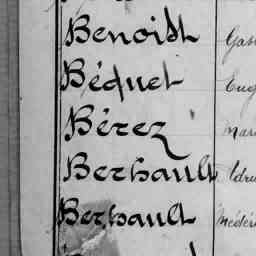 Benoist Gas
Béquet Eug
Bérez Mar
Berhault Adri
Berhault Médér